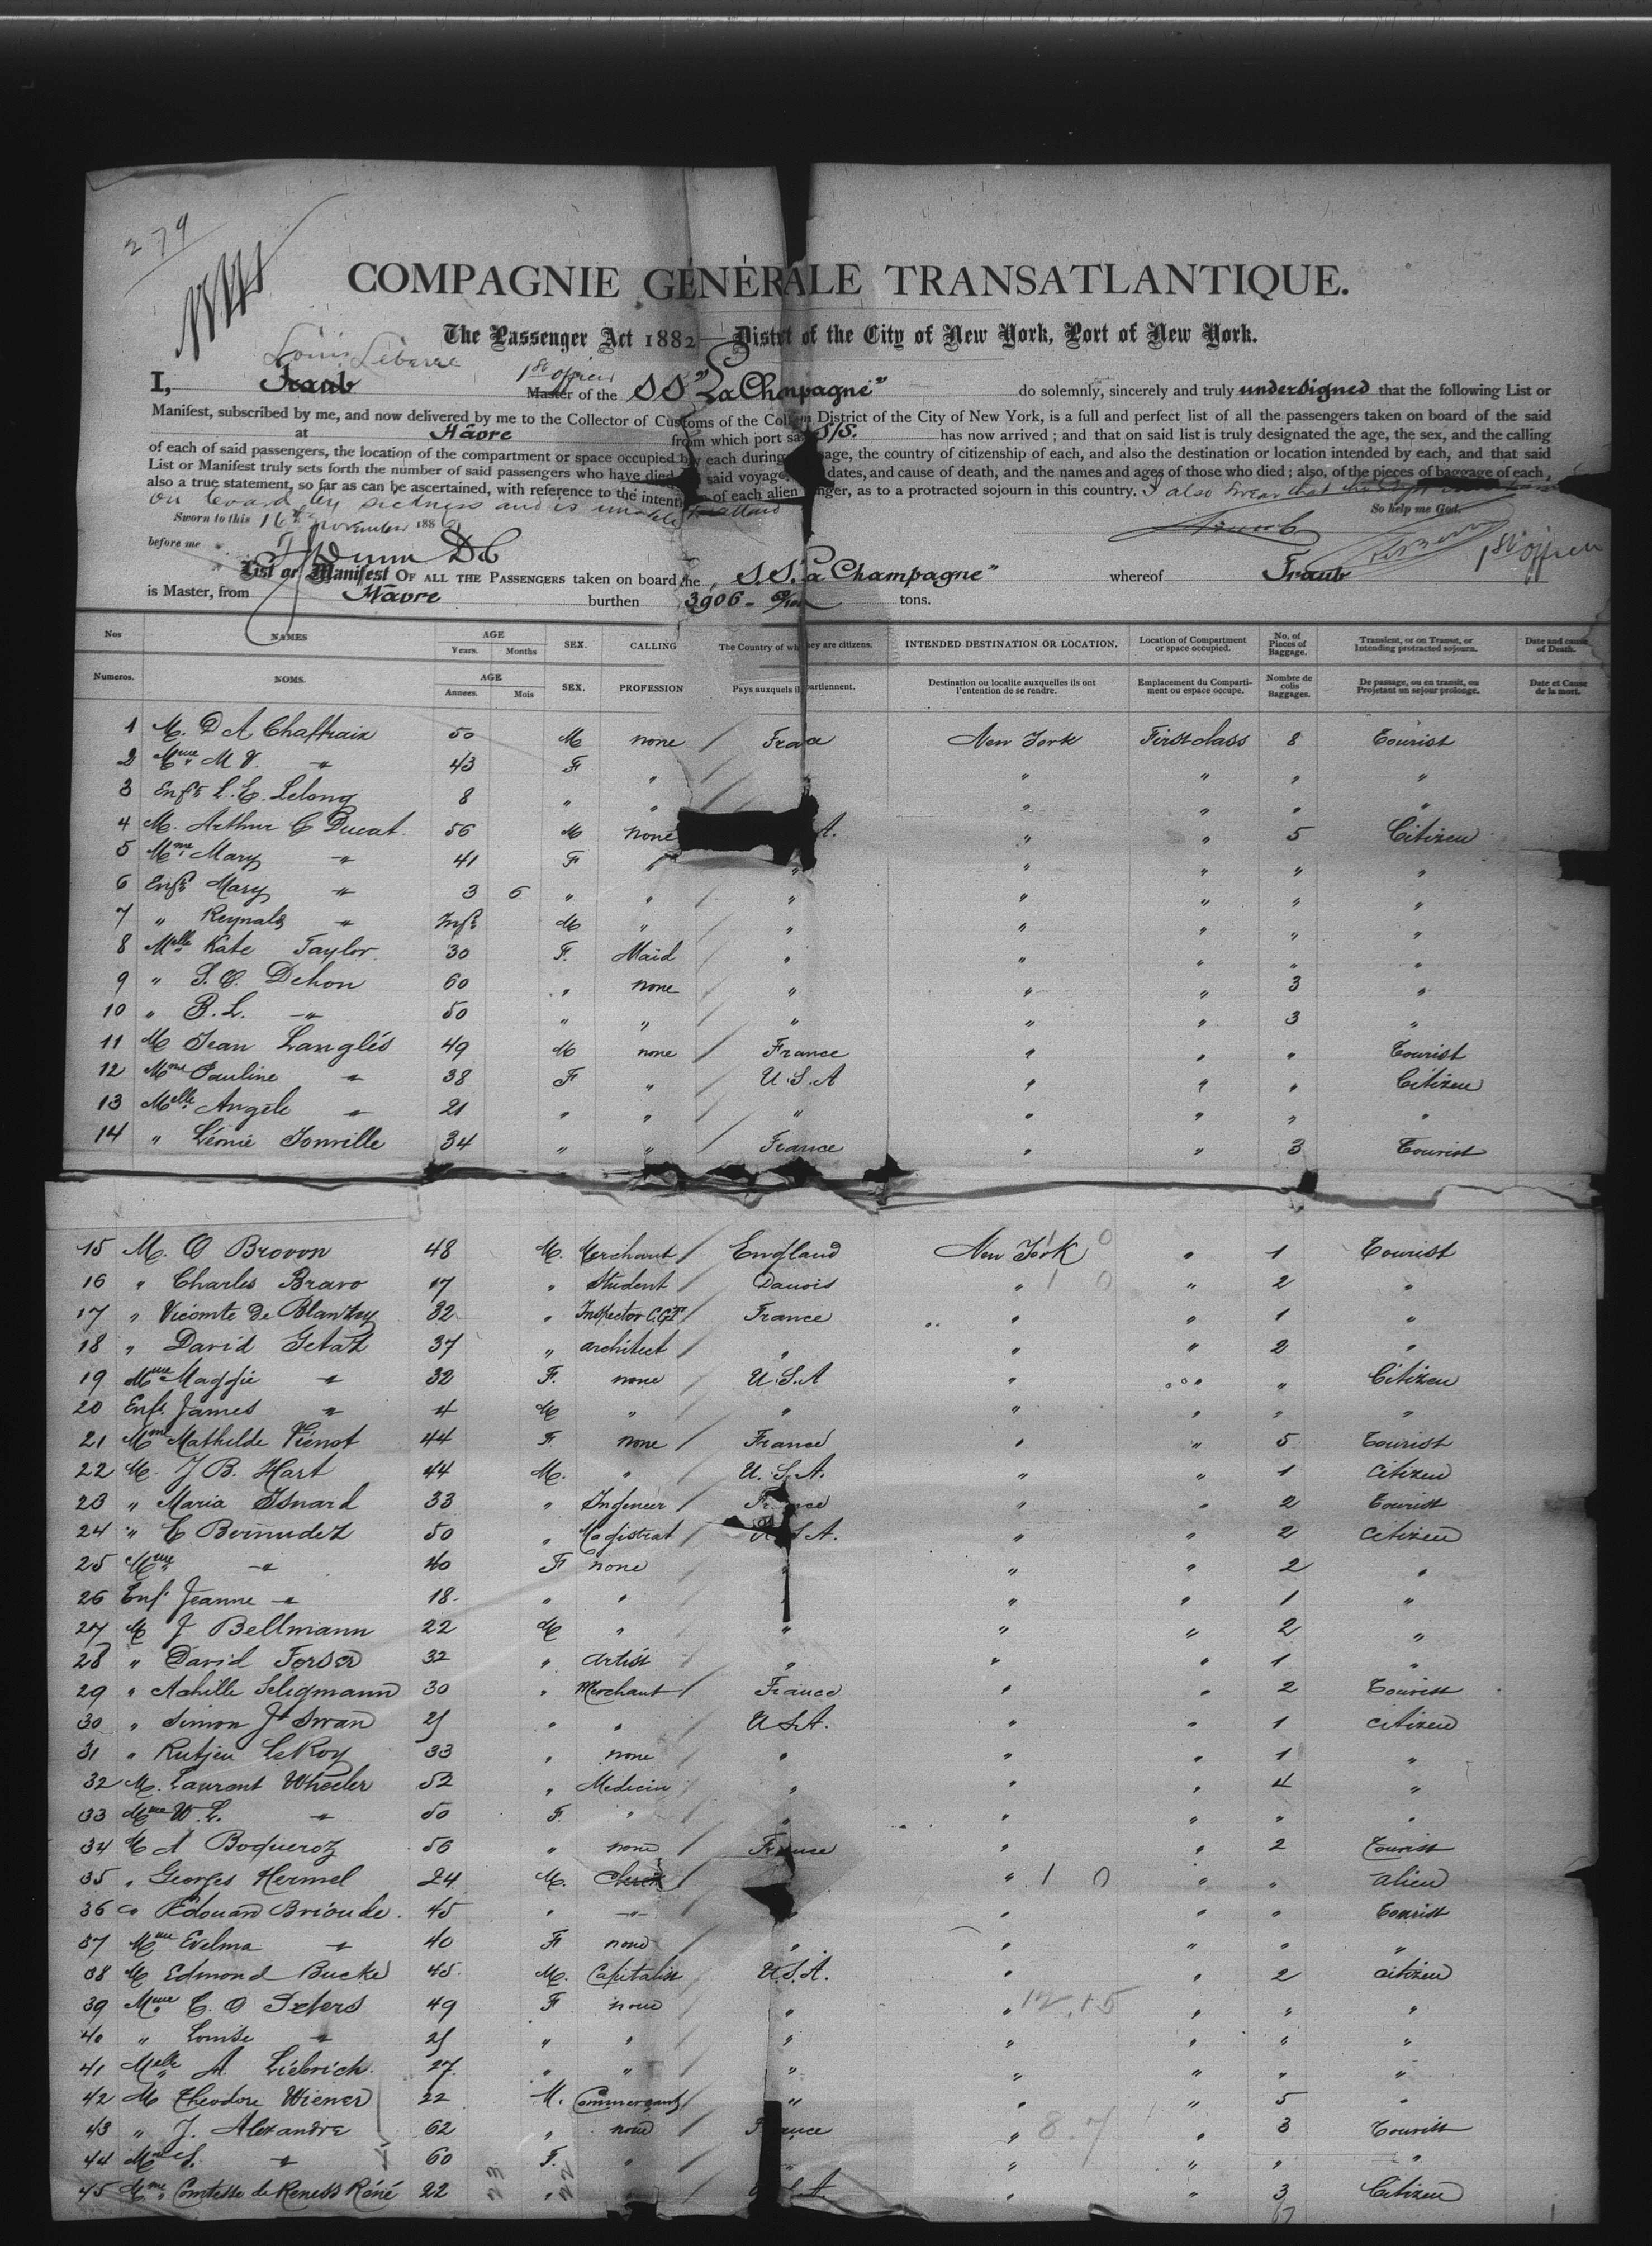 279
COMPAGNIE GÉNÉRALE TRANSATLANTIQUE.
The Passenger Act 1882 — District of the City of New York, Port of New York.
Louis
1st officer
I, Traub Master of the S S "La Champagne" do solemnly, sincerely and truly undersigned that the following List or
Manifest, subscribed by me, and now delivered by me to the Collector of Customs of the Col District of the City of New York, is a full and perfect list of all the passengers taken on board of the said
at Hâvre from which port sa S/S. has now arrived; and that on said list is truly designated the age, the sex, and the calling
of each of said passengers, the location of the compartment or space occupied by each during age, the country of citizenship of each, and also the destination or location intended by each, and that said
List or Manifest truly sets forth the number of said passengers who have died said voyage, dates, and cause of death, and the names and ages of those who died; also, of the pieces of baggage of each,
also a true statement, so far as can be ascertained, with reference to the intention of each alien nger, as to a protracted sojourn in this country. I also swear that the Capt
on board by sickness and is unable to attend
So help me God.
Sworn to this 16th November 188
Traub
before me
1st officer
List or Manifest OF ALL THE PASSENGERS taken on board the S.S. La Champagne" whereof Traub
is Master, from Hâvre burthen 3906 - tons.
Nos NAMES AGE Years. Months SEX. CALLING The Country of wh hey are citizens. INTENDED DESTINATION OR LOCATION. Location of Compartment or space occupied. No. of Pieces of Baggage. Transient, or on Transit, or Intending protracted sojourn. Date and cause of Death.
Numeros. NOMS. AGE Annees. Mois SEX. PROFESSION Pays auxquels il partiennent. Destination ou localite auxquelles ils ont l'entention de se rendre. Emplacement du Compartiment ou espace occupe. Nombre de colis Baggages. De passage, ou en transit, ou Projetant un sejour prolonge. Date et Cause de la mort.
1 M. D A Chaffraix 50 M none / France New York First class 8 Tourist
2 Mme M V. " 43 F " / " " " "
3 Enft L. E. Lelong 8 " " / " " " "
4 M. Arthur C Ducat 56 M none A. " " 5 Citizen
5 Mme Mary " 41 F " " " " " "
6 Enft Mary " 3 6 " " / " " " " "
7 " Reynalds " Inft M " / " " " " "
8 Melle Kate Taylor. 30 F. Maid / " " " " "
9 " S. O. Dehon 60 " none / " " " 3 "
10 " B. L. " 50 " " / " " " 3 "
11 M Jean Langlés 49 M none / France " " " Tourist
12 Mme Pauline " 38 F " / U.S.A " " " Citizen
13 Melle Angèle " 21 " " / " " " " "
14 " Léonie Jonville 34 " " / France " " 3 Tourist
15 M. O Brovon 48 M. Merchant / England New York " 1 Tourist
16 " Charles Bravo 17 " Student / Danois " " 2 "
17 " Vicomte de Blanzay 32 " Inspector C.G.T / France " " 1 "
18 " David Getaz 37 " architect / " " " 2 "
19 Mme Maggie " 32 F. none / U.S.A " " " Citizen
20 Enft. James " 4 M " / " " " " "
21 Mme Mathilde Viénot 44 F. none / France " " 5 Tourist
22 M. J B. Hart 44 M. " U.S.A. " " 1 Citizen
23 " Maria Isnard 33 " Ingeneer / France " " 2 Tourist
24 " E Bermudez 50 " Magistrat U.S.A. " " 2 Citizen
25 Mme " 40 F none " " " 2 "
26 Enft Jeanne " 18. " " " " 1 "
27 M J Bellmann 22 M " " " " 2 "
28 " David 32 " Artist " " " 1 "
29 " Achille Seligmann 30 " Merchant / France " " 2 Tourist
30 " Simon J Swan 25 " " U.S.A. " " 1 Citizen
31 " LeRoy 33 " none / " " " 1 "
32 M. Laurent Wheeler 52 " Medecin " " " 4 "
33 Mme W. L. " 50 F. " " " " " "
34 M A Boqueroz 56 " none / France " " 2 Tourist
35 " Georges Hermel 24 M. Clerck / " 1 0 " " alien
36 " Edouard Brioude. 45 " " " " " Tourist
37 Mme Evelma " 40 F none " " " " "
38 M Edmond Bucke 45. M. Capitalist U.S.A. " " 2 citizen
39 Mme C. O Peters 49 F none " " " " "
40 " Louise " 25 " " " " " " "
41 Melle A. Liebrich. 27. " " " " " " "
42 M Theodore Wiener 22 M. Commerçant " " " 5 "
43 " J. Alexandre 62 " none France " 8.7 " 3 Tourist
44 Mme S. " 60 F. " " " " " "
45 Mme Comtesse de Reness Réné 22 " U.S.A. " " 3 Citizen